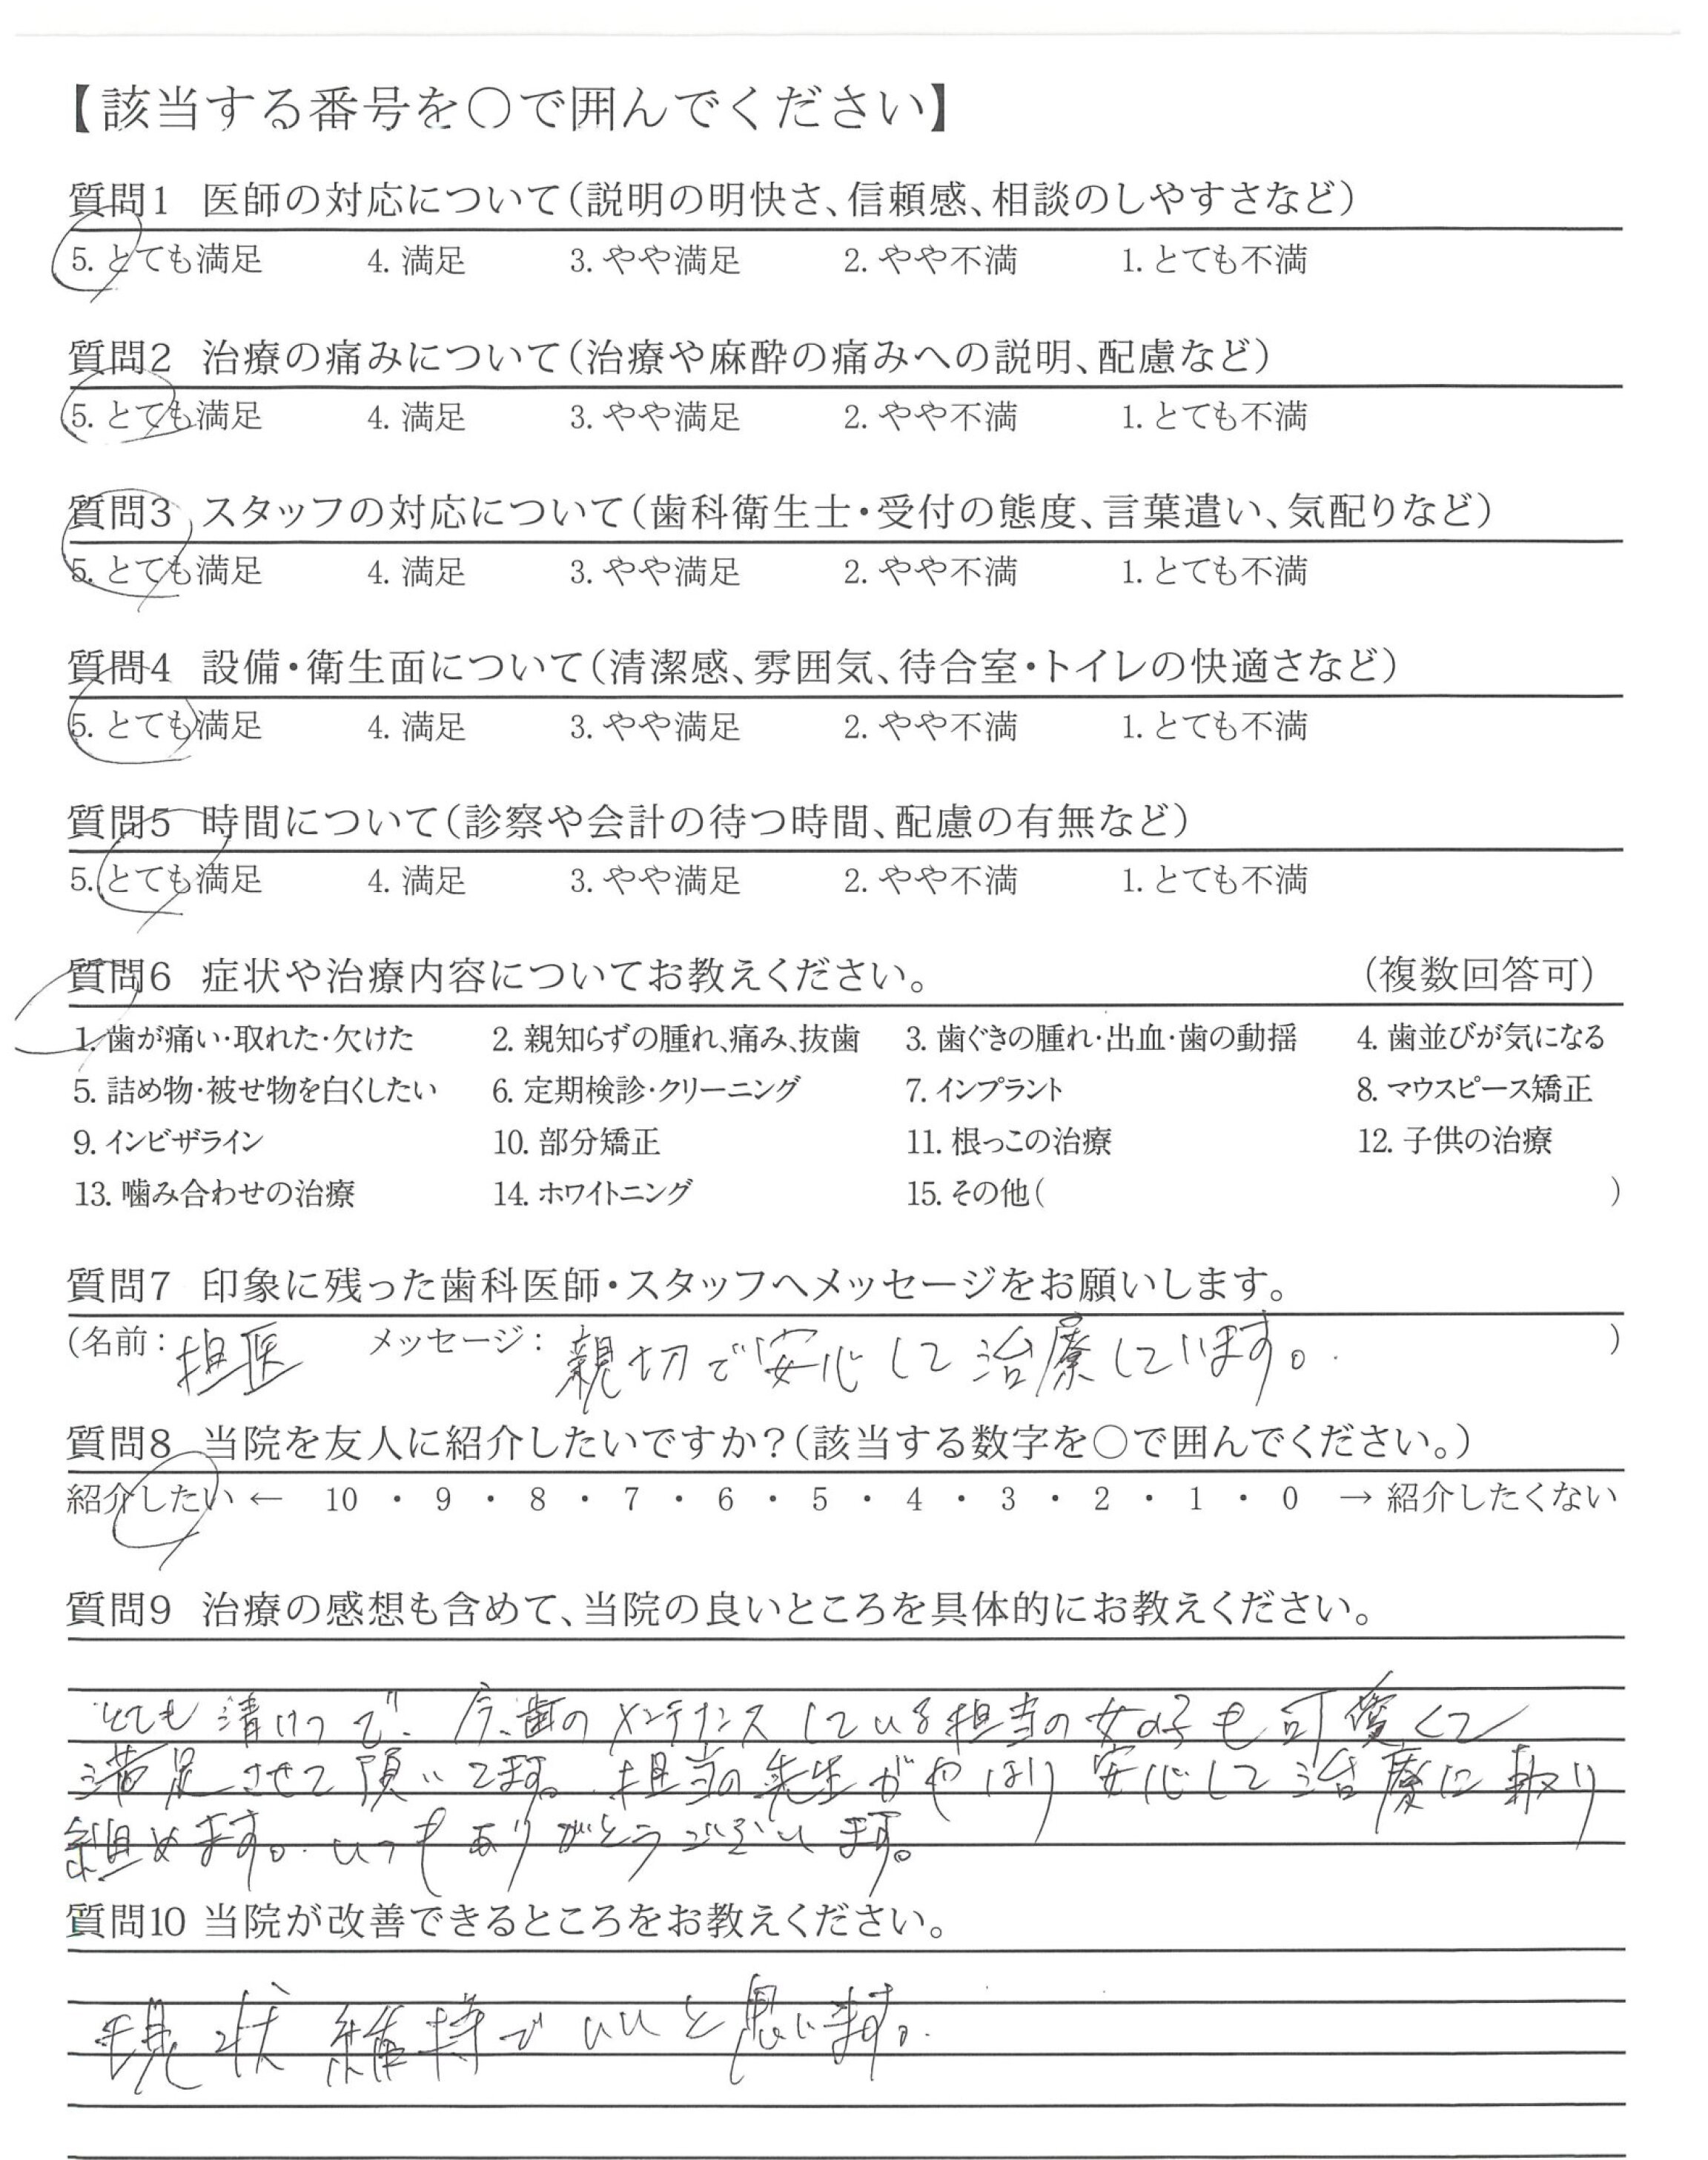 【該当する番号を○で囲んでください】
質問1 医師の対応について（説明の明快さ、信頼感、相談のしやすさなど）
5. とても満足 4. 満足 3. やや満足 2. やや不満 1. とても不満
質問2 治療の痛みについて（治療や麻酔の痛みへの説明、配慮など）
5. とても満足 4. 満足 3. やや満足 2. やや不満 1. とても不満
質問3 スタッフの対応について（歯科衛生士・受付の態度、言葉遣い、気配りなど）
5. とても満足 4. 満足 3. やや満足 2. やや不満 1. とても不満
質問4 設備・衛生面について（清潔感、雰囲気、待合室・トイレの快適さなど）
5. とても満足 4. 満足 3. やや満足 2. やや不満 1. とても不満
質問5 時間について（診察や会計の待つ時間、配慮の有無など）
5. とても満足 4. 満足 3. やや満足 2. やや不満 1. とても不満
質問6 症状や治療内容についてお教えください。 （複数回答可）
1. 歯が痛い・取れた・欠けた 2. 親知らずの腫れ、痛み、抜歯 3. 歯ぐきの腫れ・出血・歯の動揺 4. 歯並びが気になる
5. 詰め物・被せ物を白くしたい 6. 定期検診・クリーニング 7. インプラント 8. マウスピース矯正
9. インビザライン 10. 部分矯正 11. 根っこの治療 12. 子供の治療
13. 噛み合わせの治療 14. ホワイトニング 15. その他（ ）
質問7 印象に残った歯科医師・スタッフへメッセージをお願いします。
（名前： 担医 メッセージ： 親切で安心して治療しています。 ）
質問8 当院を友人に紹介したいですか？（該当する数字を○で囲んでください。）
紹介したい ← 10 ・ 9 ・ 8 ・ 7 ・ 6 ・ 5 ・ 4 ・ 3 ・ 2 ・ 1 ・ 0 → 紹介したくない
質問9 治療の感想も含めて、当院の良いところを具体的にお教えください。
とても 今、歯のメンテナンスしている担当の女の子も可愛くて
満足させて頂いてます。担当の先生がやはり安心して治療に取り
組めます。いつもありがとうございます。
質問10 当院が改善できるところをお教えください。
現状維持でいいと思います。